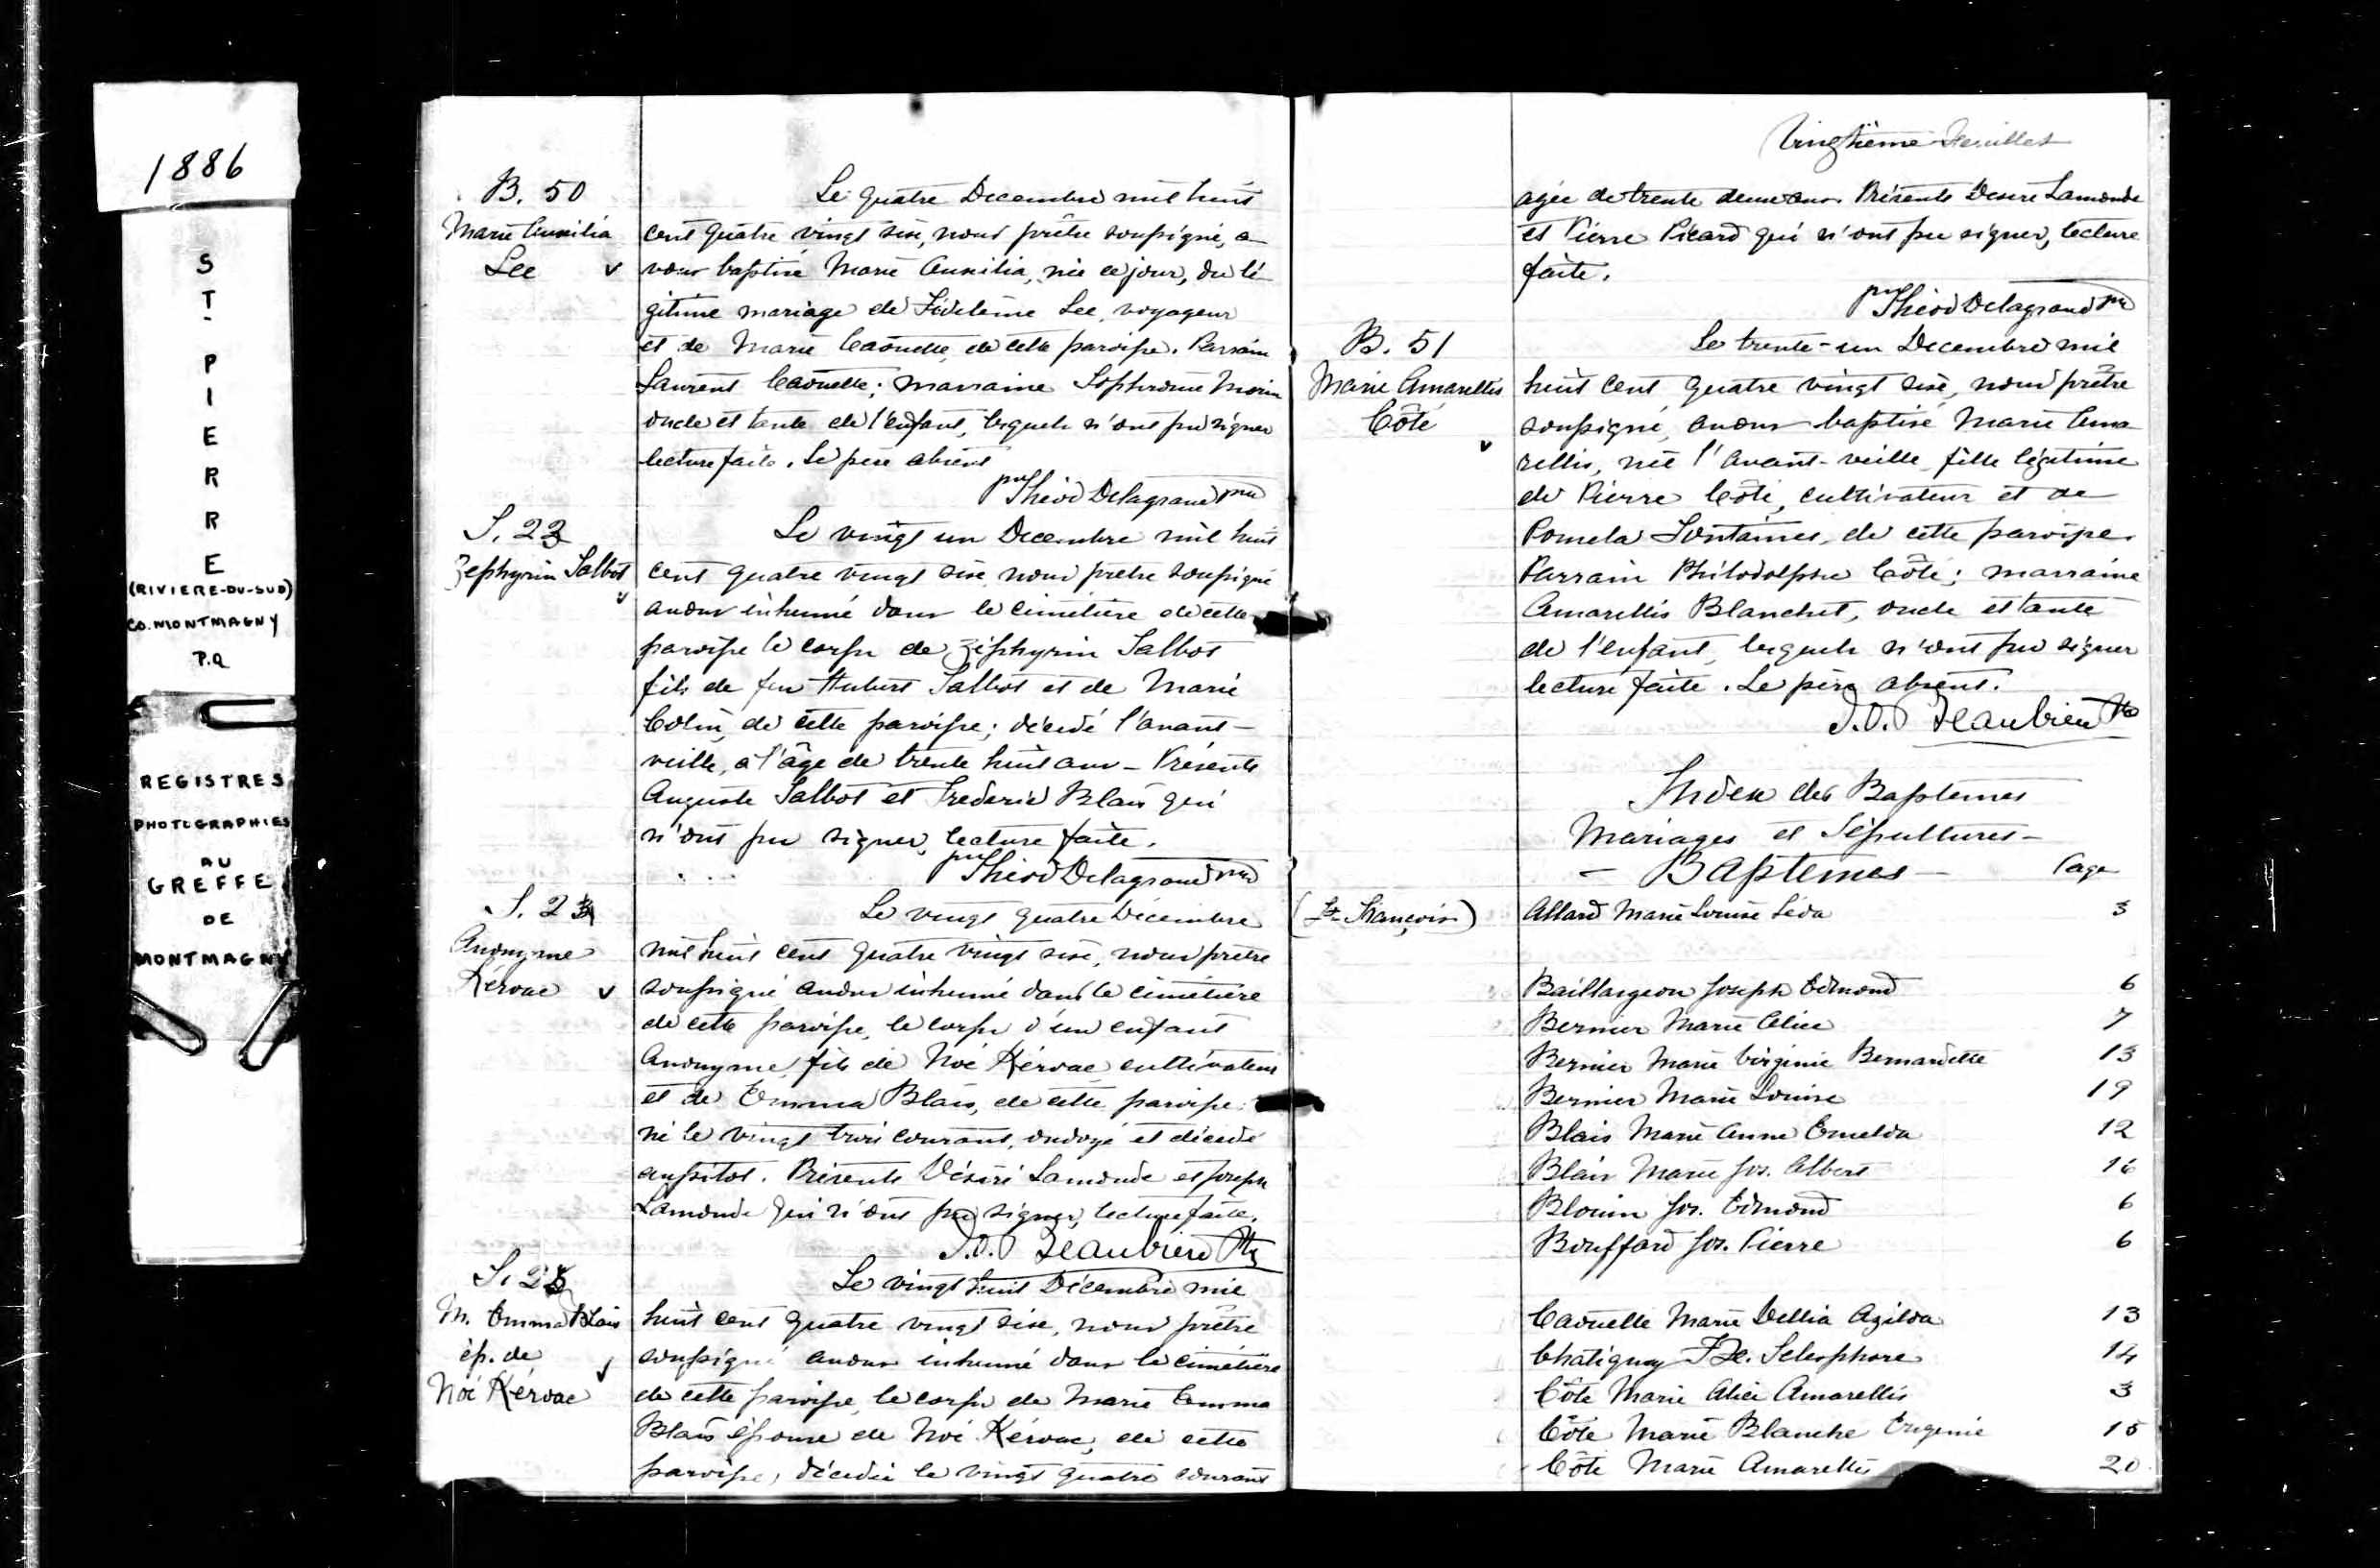 1886
ST-PIERRE
(RIVIERE-DU-SUD)
CO. MONTMAGNY
P.Q
REGISTRES
PHOTOGRAPHIES
AU
GREFFE
DE
MONTMAGNY
B. 50
Marie Auxilia
Lee
Le quatre Decembre mil huit
cent quatre vingt six, nous prêtre soussigné, a-
vons baptisé Marie Auxilia, née ce jour, du lé
gitime mariage de Fidelème Lee, voyageur
et de Marie Caouette, de cette paroisse. Parrain
Laurent Caouette; marraine Sophronie Morin
oncle et tante de l'enfant, lesquels n'ont pu signer
lecture faite. Le père absent
Théod Delagrave ptre
S. 22
Zephyrin Talbot
Le vingt un Decembre mil huit
cent quatre vingt six, nous pretre soussigné
avons inhumé dans le cimetière de cette
paroisse le corps de Zéphyrin Talbot
fils de feu Hubert Talbot et de Marie
Colin, de cette paroisse; décédé l'avant-
veille, à l'âge de trente huit ans - Présents
Auguste Talbot et Frederic Blais qui
n'ont pu signer, lecture faite.
Théod Delagrave ptre
S. 23
Anonyme
Kéroac
Le vingt quatre Décembre
mil huit cent quatre vingt six, nous pretre
soussigné avons inhumé dans le cimetière
de cette paroisse, le corps d'un enfant
Anonyme, fils de Noé Kéroac, cultivateur
et de Emma Blais, de cette paroisse
né le vingt trois courant, ondoyé et décédé
aussitot. Présents Désiré Lamonde et Joseph
Lamonde qui n'ont pu signer, lecture faite.
J.O.P Beaubien Ptre
S. 25
M. Emma Blais
ép. de
Noé Kéroac
Le vingt huit Décembre mil
huit cent quatre vingt six, nous prêtre
soussigné avons inhumé dans le cimetière
de cette paroisse, le corps de Marie Emma
Blais épouse de Noé Kéroac, de cette
paroisse, décédée le vingt quatre courant
Vingtième Feuillet
agée de trente deux ans. Présents Desiré Lamonde
et Pierre Picard qui n'ont pu signer, lecture
faite.
Théod Delagrave ptre
B. 51
Marie Amarellis
Côté
Le trente-un Decembre mil
huit cent quatre vingt six, nous prêtre
soussigné, avons baptisé Marie Ama-
rellis, née l'avant-veille, fille légitime
de Pierre Côté, cultivateur et de
Pomela Fontaine, de cette paroisse.
Parrain Philodolphe Côté; marraine
Amarellis Blanchet, oncle et tante
de l'enfant, lesquels n'ont pu signer
lecture faite. Le père absent.
J.O.P Beaubien Ptre
Index des Baptemes
Mariages et Sépultures-
- Baptemes - Page
(St-François) Allard Marie Louise Léda 3
Baillargeon Joseph Edmond 6
Bernier Marie Alice 7
Bernier Marie Virginie Bernardette 13
Bernier Marie Louise 19
Blais Marie Anne Emelda 12
Blais Marie Jos. Albert 16
Blouin Jos. Edmond 6
Bouffard Jos. Pierre 6
Caouette Marie Dellia Azilda 13
Chatigny Telesphore 14
Côté Marie Alice Amarellis 3
Côté Marie Blanche Eugenie 15
Côté Marie Amarellis 20